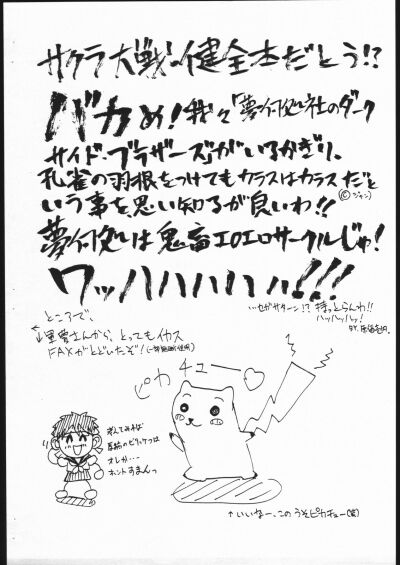 サクラ大戦の健全本だとう!?
バカめ!我々「夢何処社のダーク
サイド・ブラザーズ」がいるかぎり、
孔雀の羽根をつけてもカラスはカラスだと
いう事を思い知るが良いわ!!
©ジャン
夢何処は鬼畜エロエロサークルじゃ!
ワッハハハハハ!!!
…セガサターン!?持っとらんわ!!
ハッハッハッ!
ところで、
さんから、とってもイカス
FAXがとどいたぞ!
ピカチュー♡
考えてみれば
オレか…
ホントすまんっ
↑いいなー、このうそピカチュー(笑)